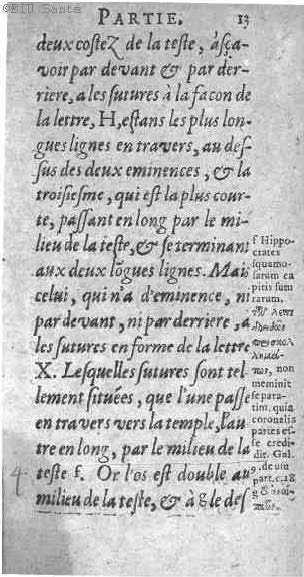 ©BIU Santé
PARTIE. 13
deux costez de la teste, à sça-
voir par devant & par der-
riere, a les sutures à la façon de
la lettre, H, estans les plus lon-
gues lignes en travers, au des-
sus des deux eminences, & la
troisiesme, qui est la plus cour-
te, passant en long par le mi-
lieu de la teste, & se terminant
aux deux lõgues lignes. Mais
celui, qui n'a d'eminence, ni
par devant, ni par derriere, a
les sutures en forme de la lettre
X. Lesquelles sutures sont tel-
lement situées, que l'une passe
en travers vers la temple, l'au-
tre en long, par le milieu de la
teste f. Or l'os est double au
milieu de la teste, & à
f Hippo-
crates
squamo-
sarum ca
pitis sutu
rarum,
non
meminit
separa-
tim, quia
coronalis
partes es-
se credi-
dit. Gal.
9. de usu
part. c. 18
4